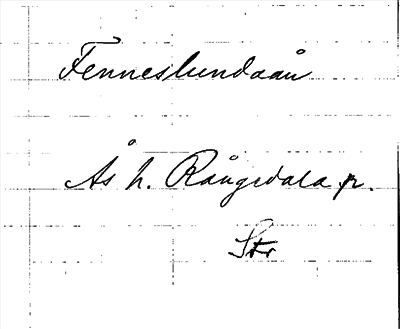 Fenneslundaån
Ås h. Rångedala sn.
Str